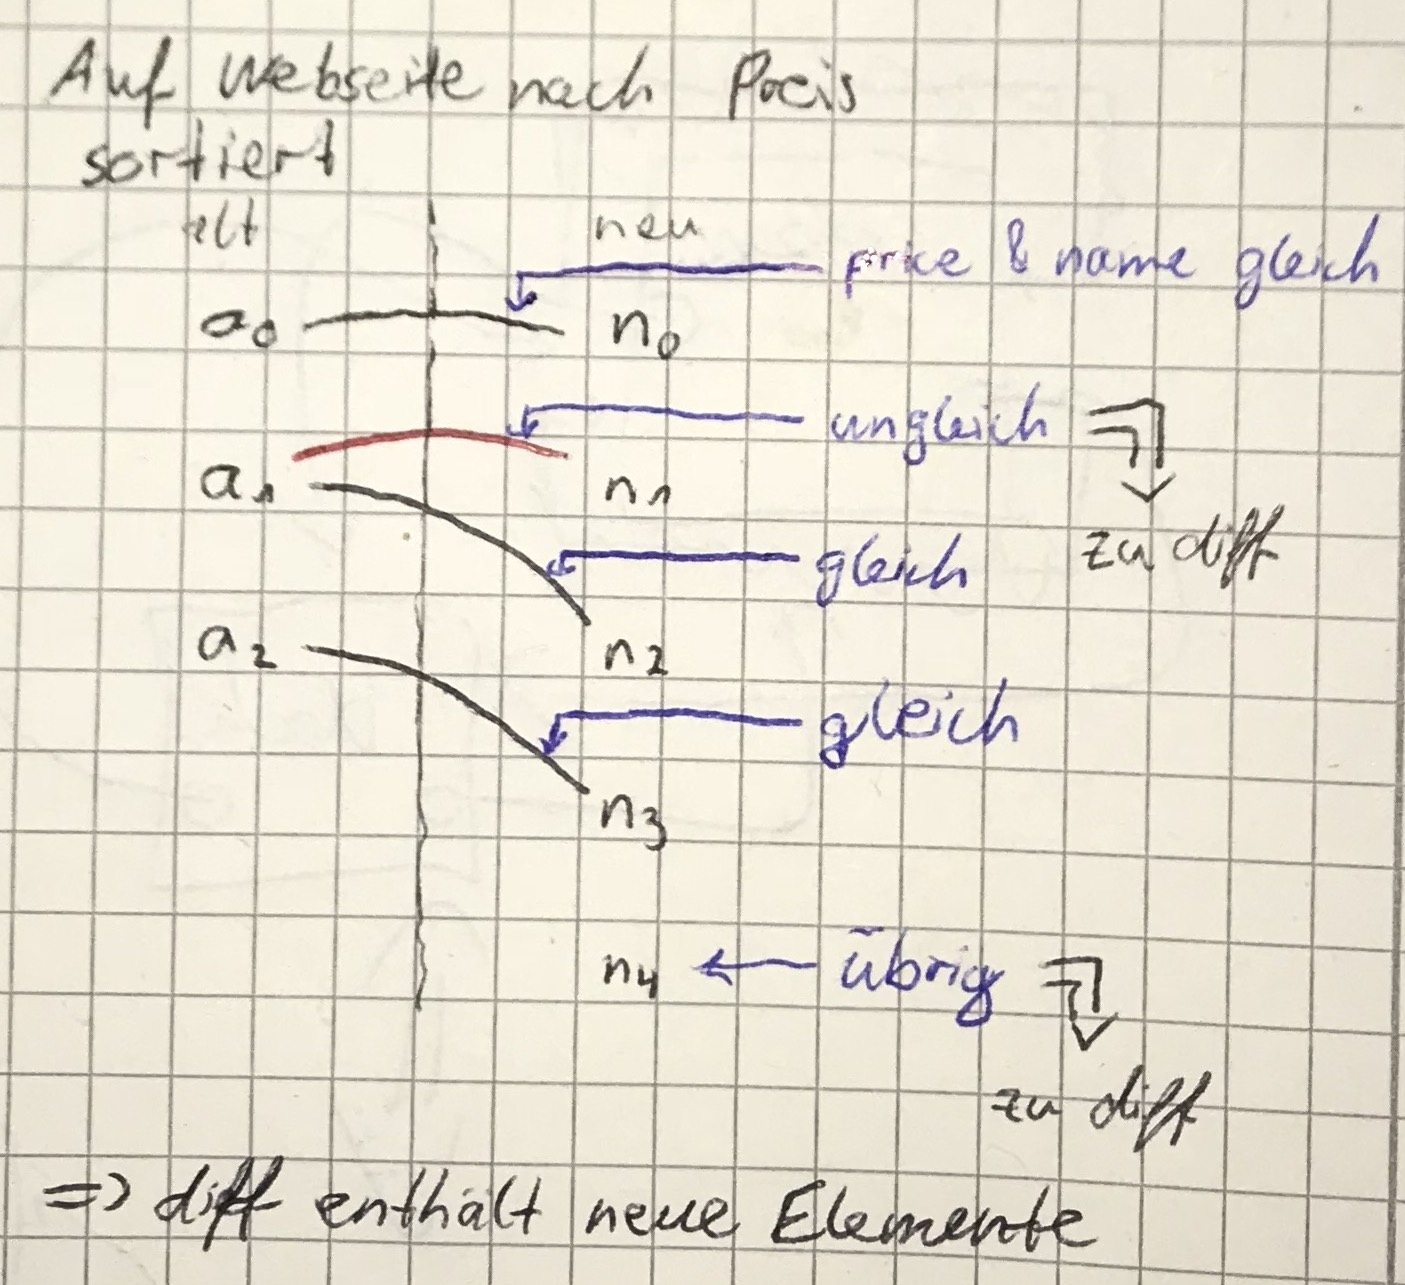 Auf Webseite nach Preis
sortiert
alt neu
price & name gleich
a₀ n₀
ungleich
a₁ n₁
zu diff
gleich
a₂ n₂
gleich
n₃
n₄ ← übrig
zu diff
=> diff enthält neue Elemente